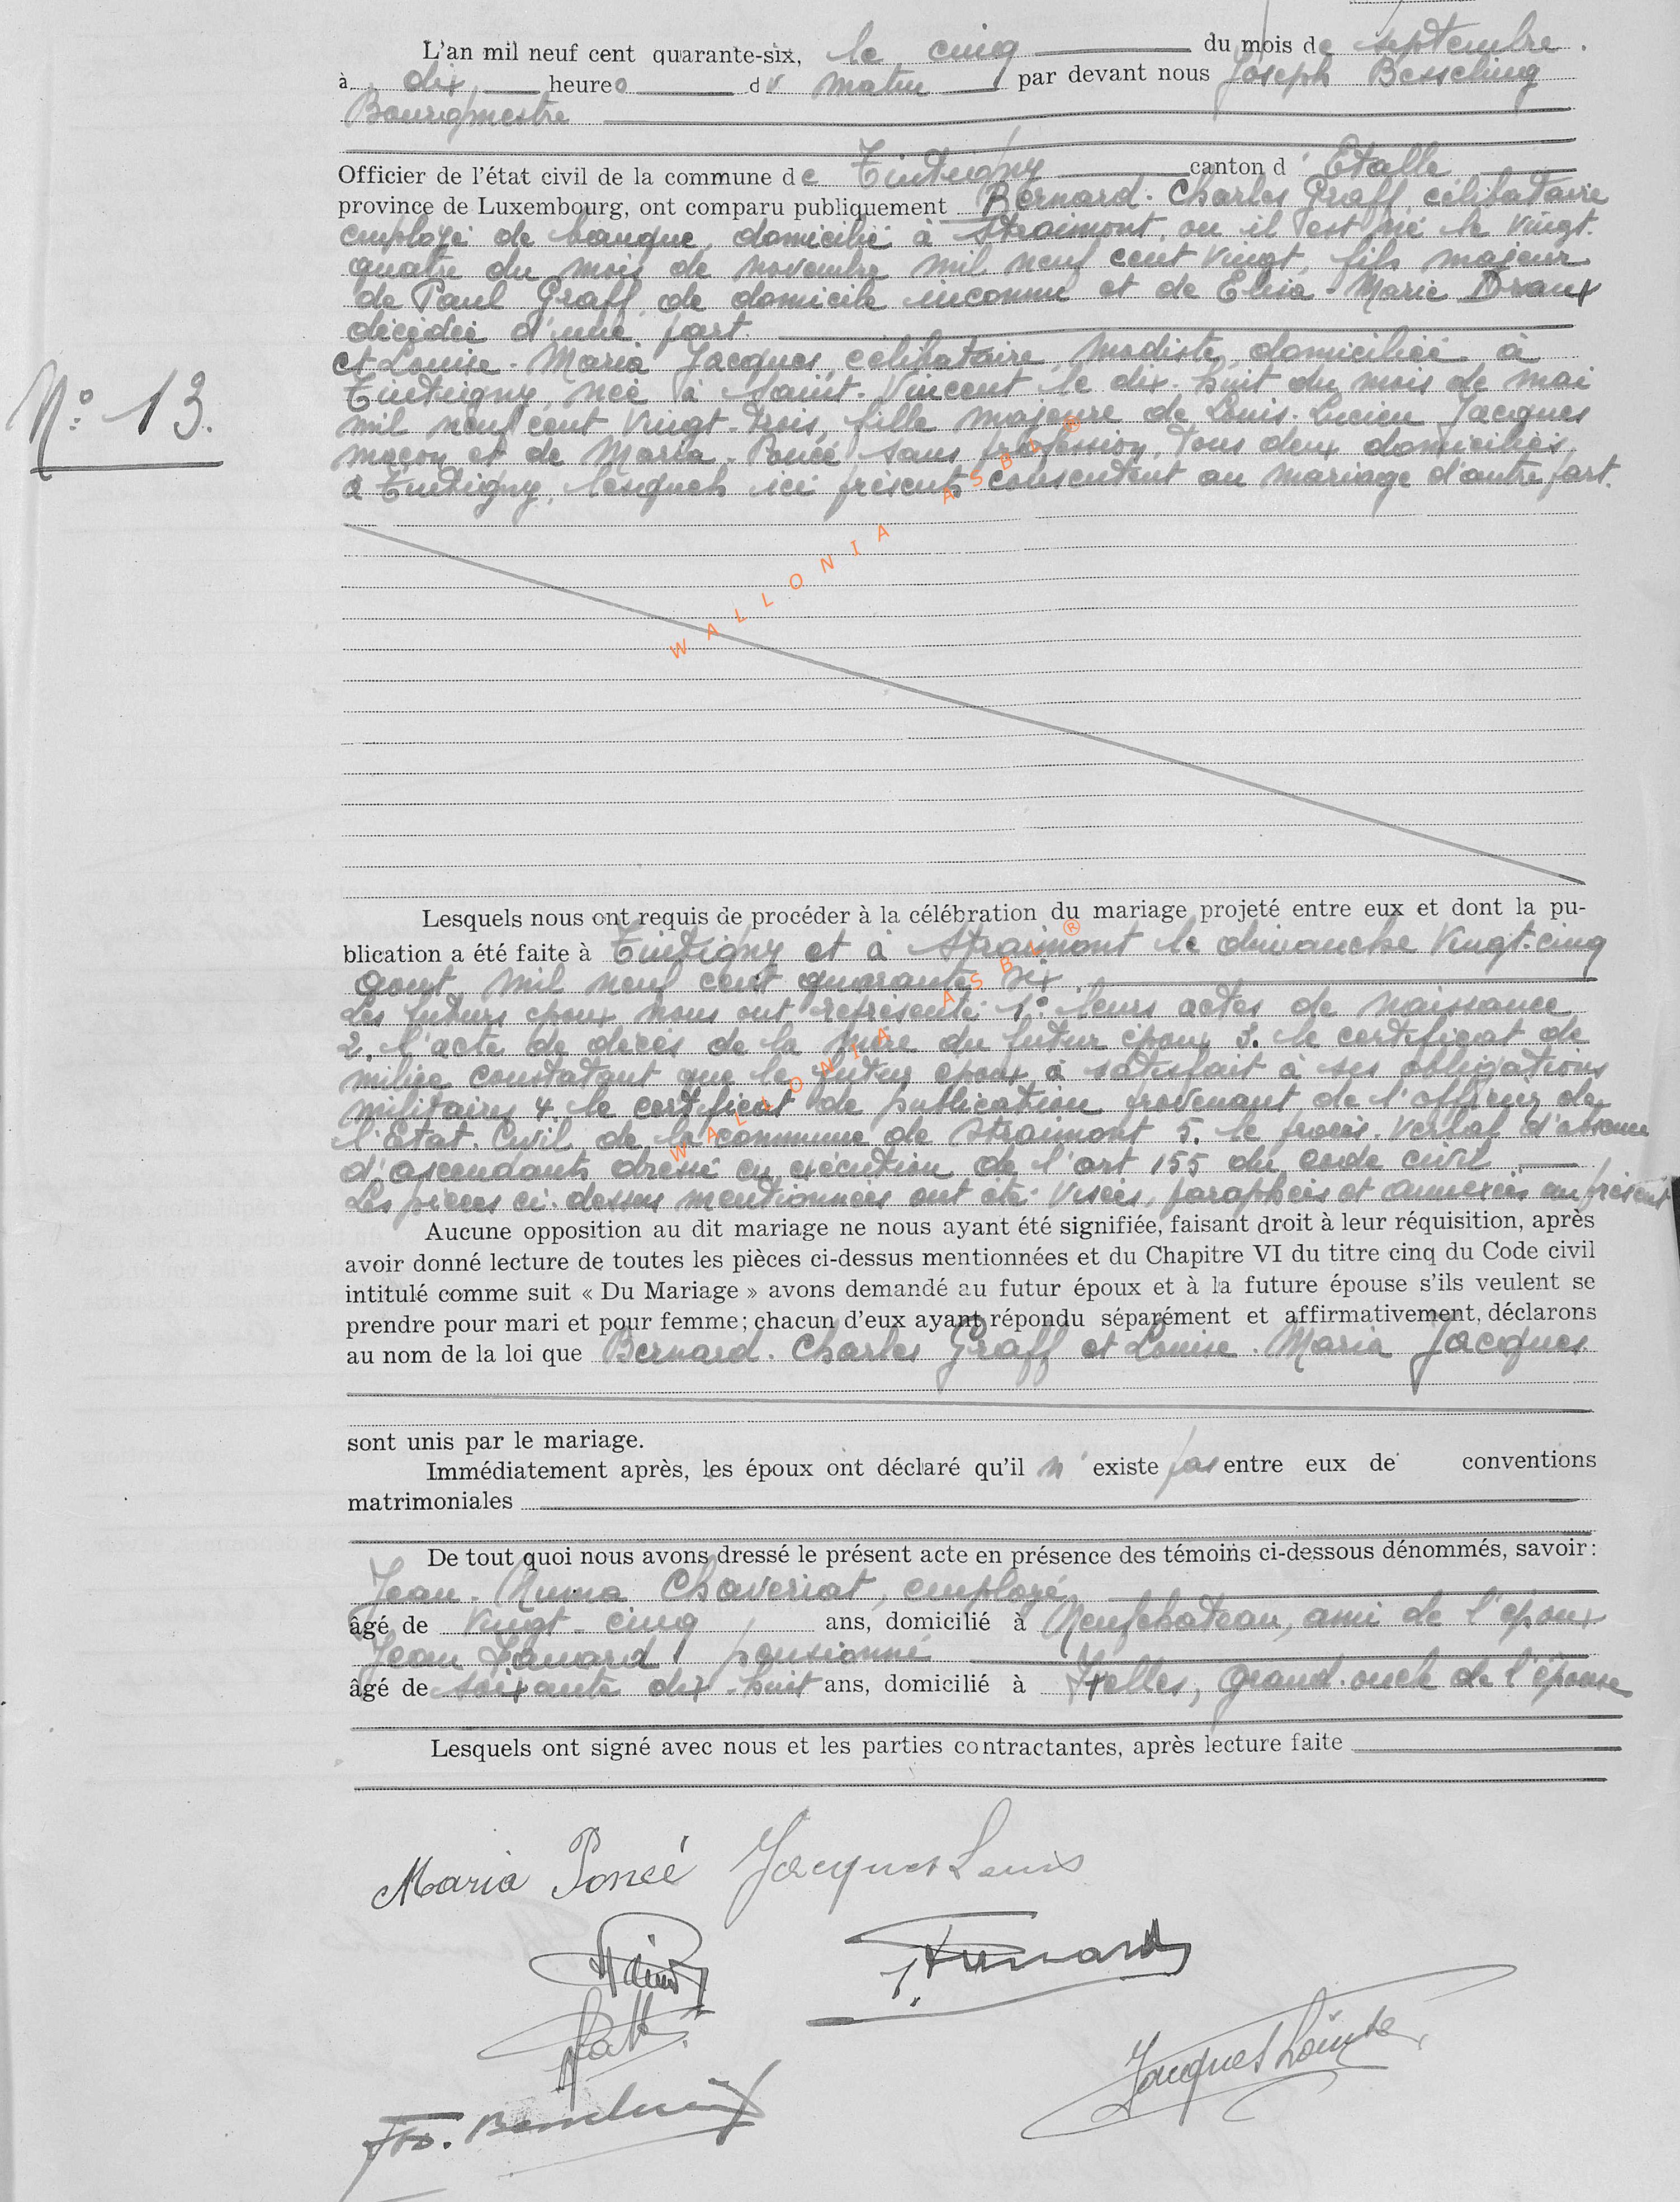 L'an mil neuf cent quarante-six, le cinq du mois de septembre .
à dix heures du matin par devant nous Joseph Besseling
Bourgmestre
Officier de l'état civil de la commune de Tintigny canton d' Etalle
province de Luxembourg, ont comparu publiquement Bernard-Charles Graff, célibataire
employé de banque, domicilié à Straimont, ou il est né le vingt-
quatre du mois de novembre mil neuf cent vingt, fils majeur
de Paul Graff, de domicile inconnu et de Marie
décédée d'une part.
et Louise-Maria Jacques, célibataire modiste, domiciliée à
Tintigny, née à Saint-Vincent le dix-huit du mois de mai
mil neuf cent vingt-trois, fille majeure de Louis-Lucien Jacques
maçon et de Maria Poncé sans profession, tous deux domiciliés
à Tintigny, lesquels ici présents consentent au mariage d'autre part.
N° 13.
WALLONIA ASBL ®
Lesquels nous ont requis de procéder à la célébration du mariage projeté entre eux et dont la pu-
blication a été faite à Tintigny et à Straimont le dimanche vingt-cinq
aout mil neuf cent quarante six.
Les futurs époux nous ont représenté 1° leurs actes de naissance
2. l'acte de décès de la mère du futur époux 3. le certificat de
milice constatant que le futur époux a satisfait à ses obligations
militaires 4. le certificat de publication provenant de l'officier de
l'Etat-Civil de la commune de Straimont 5. le procès-verbal d'absence
d'ascendants dressé en exécution de l'art 155 du code civil
Les pièces ci-dessus mentionnées ont été visées, paraphées et annexées au présent
WALLONIA ASBL ®
Aucune opposition au dit mariage ne nous ayant été signifiée, faisant droit à leur réquisition, après
avoir donné lecture de toutes les pièces ci-dessus mentionnées et du Chapitre VI du titre cinq du Code civil
intitulé comme suit « Du Mariage » avons demandé au futur époux et à la future épouse s'ils veulent se
prendre pour mari et pour femme; chacun d'eux ayant répondu séparément et affirmativement, déclarons
au nom de la loi que Bernard-Charles Graff et Louise-Maria Jacques
sont unis par le mariage.
Immédiatement après, les époux ont déclaré qu'il n' existe pas entre eux de conventions
matrimoniales
De tout quoi nous avons dressé le présent acte en présence des témoins ci-dessous dénommés, savoir:
Jean-Numa Chaveriat, employé
âgé de vingt-cinq ans, domicilié à Neufchateau, ami de l'époux
Jean pensionné
âgé de soixante dix-huit ans, domicilié à Ixelles, grand-oncle de l'épouse
Lesquels ont signé avec nous et les parties contractantes, après lecture faite
Maria Poncé Jacques Louis
Jacques Louise